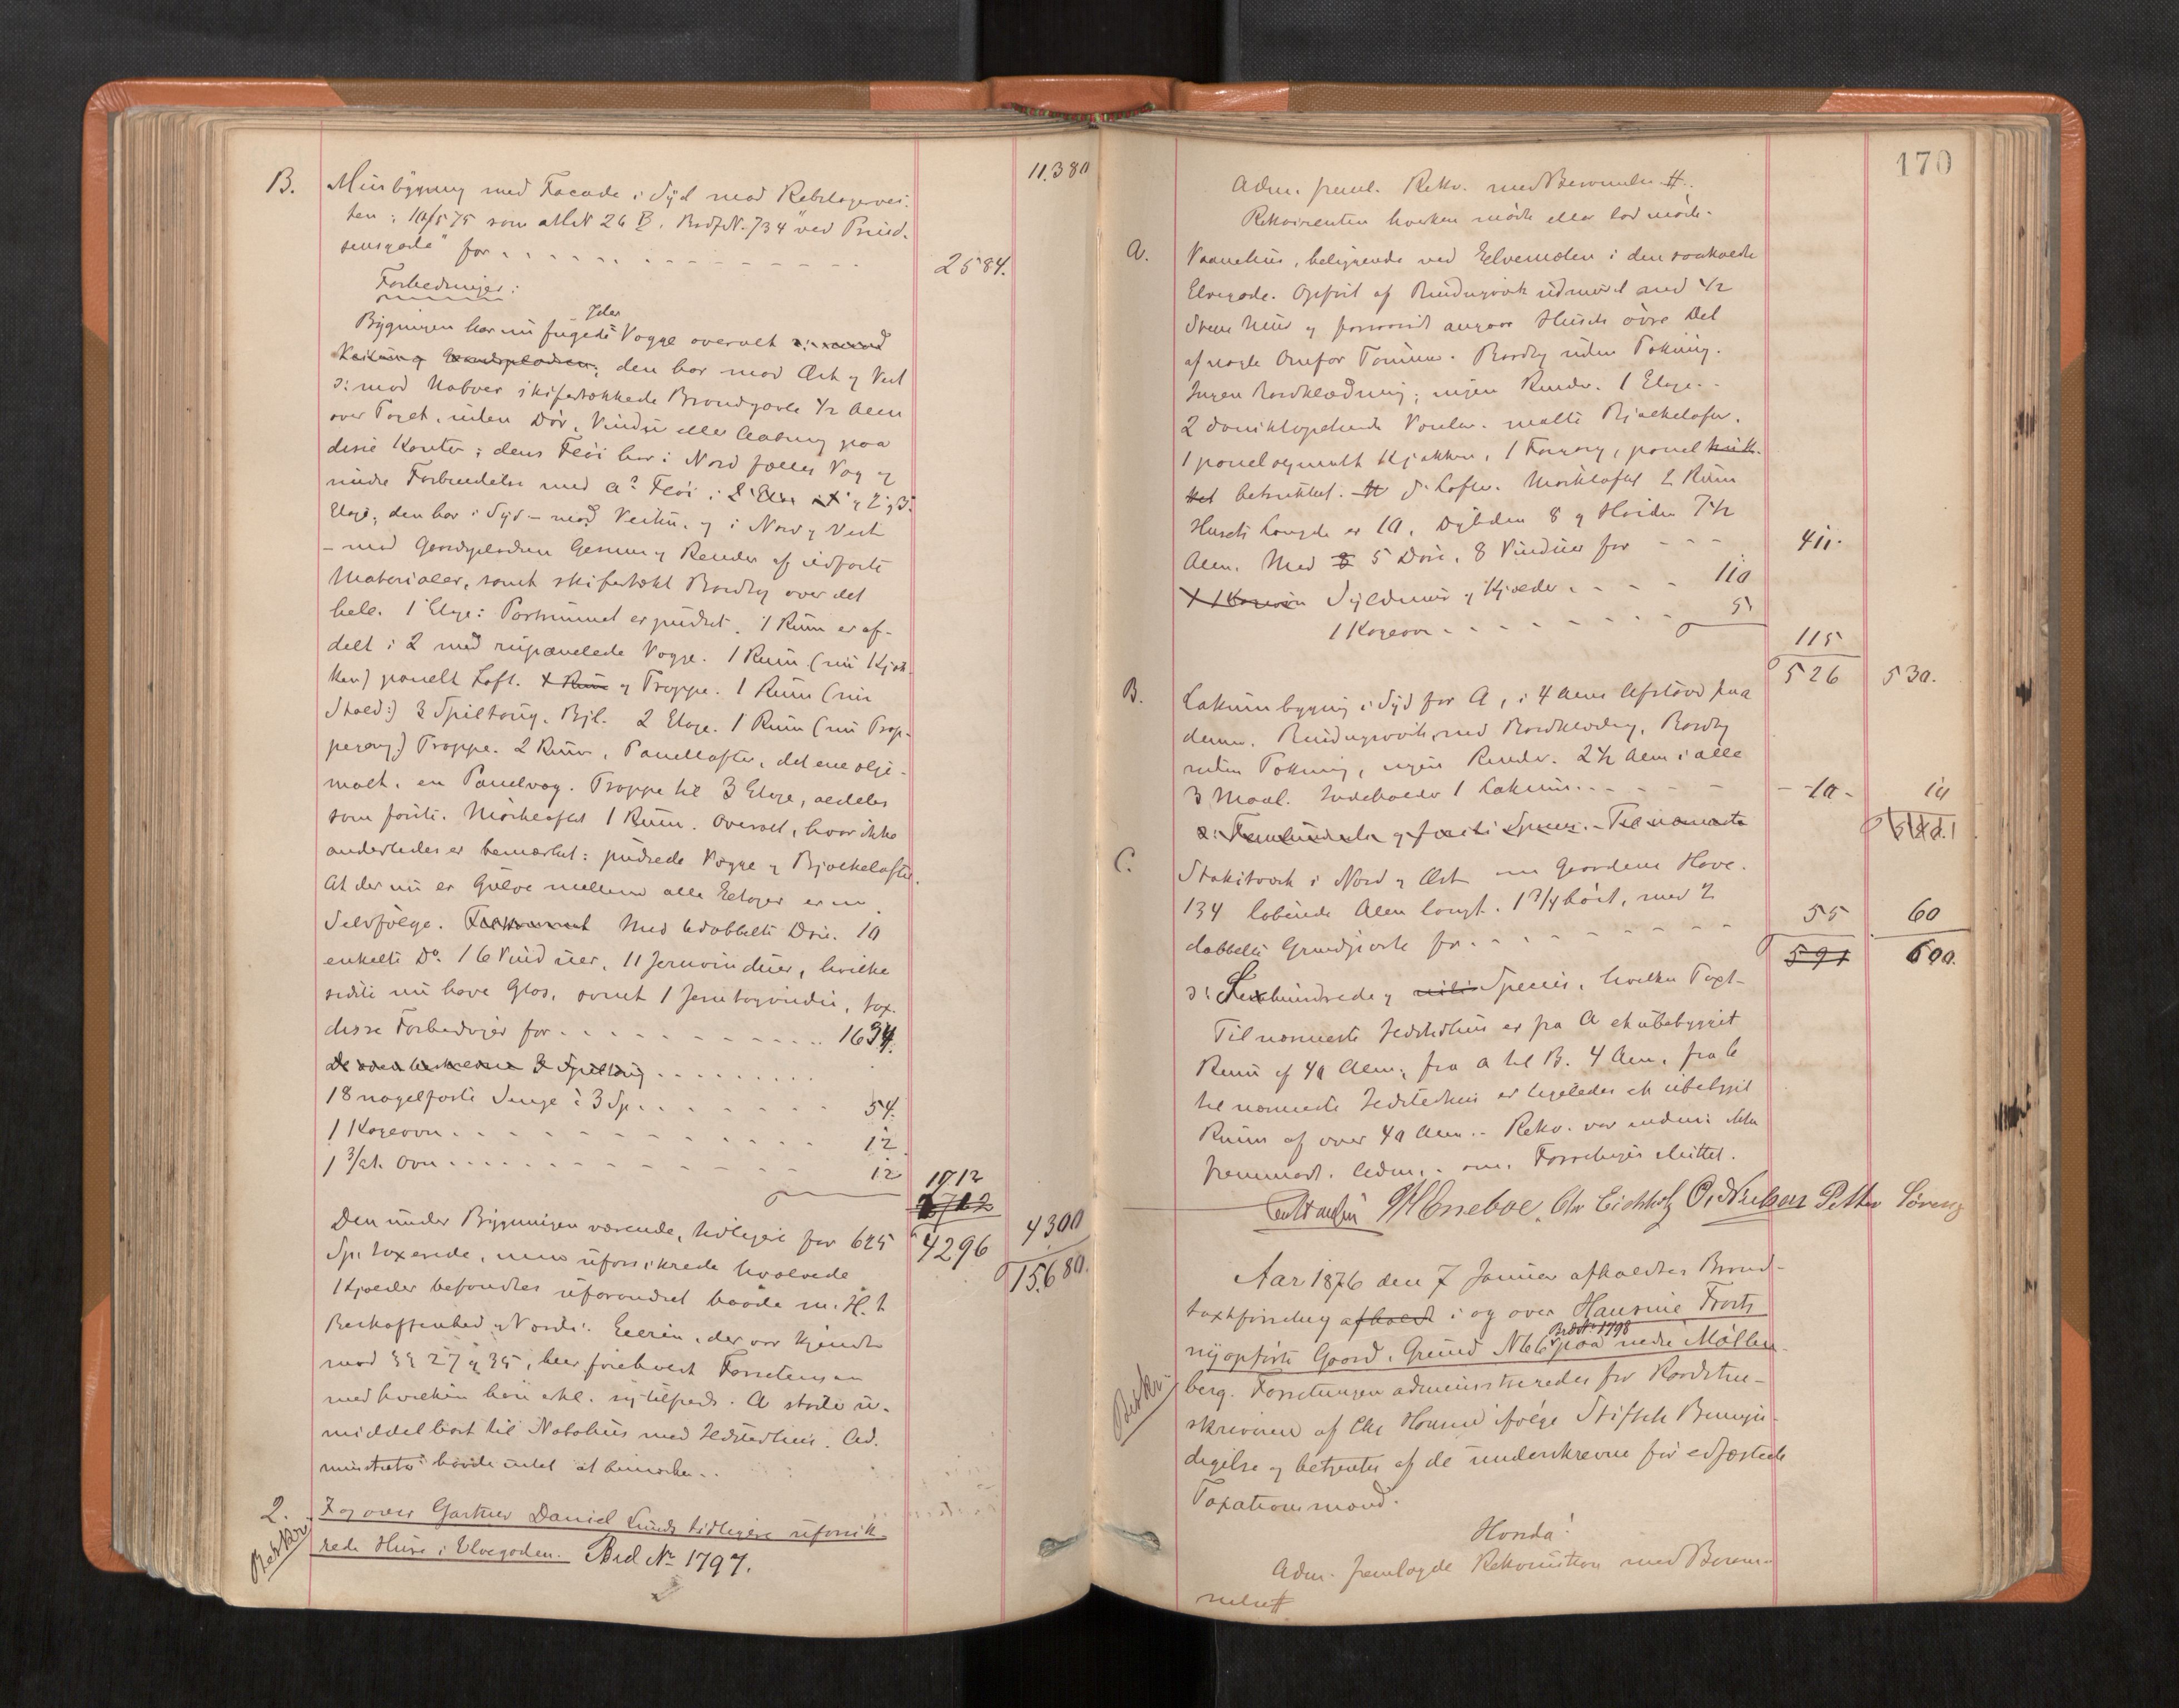 11.380
B. Muurbygning med Facade i Syd mod Rebslagervei-
ten: 10/5 75 som MN 26 B. Brdf. N. 734 "ved Prind-
sensgade" for
2584.
Forbedringer:
Bygningen har nu fugede Ydervægge overalt
den har mod Øst og Vest
ɔ: mod Naboer skifertækkede Brandgavle 1/2 Alen
over Taget, uden Dør, Vindu eller Aabning paa
disse Kanter; dens Fløi har i Nord fælles Væg og
indre Forbindelse med A's Fløi i 2 og 3
Etage; den har i Syd - mod Veiten, og i Nord og Vest
- mod Gaardspladsen Gesims og Render af ildfaste
Materialer, samt skifertækt Bordtag over det
hele. 1 Etage: Portrummet er pudset. 1 Rum er af-
delt i 2 med rupanelede Vægge. 1 Rum (nu Kjøk-
ken) panelt Loft. og Trappe. 1 Rum (nu
Stald:) 3 Spiltoug. Bjl. 2 Etage. 1 Rum (nu Trap-
pegang:) Trappe. 2 Rum, Panellofter, det ene olje-
malt, en Panelvæg. Trappe til 3 Etage, aldeles
som forrige. Mørkloftet 1 Rum. Overalt, hvor ikke
anderledes er bemærket: pudsede Vægge og Bjælkelofter.
At der nu er Gulve mellem alle Etager er en
Selvfølge. Med dobbelte Døre. 10
enkelte Do. 16 Vinduer, 11 Jernvinduer, hvilke
sidste nu have Glas, samt 1 Jerntagvindu, tax.
disse Forbedringer for 1634.
18 nagelfaste Senge à 3 Sp. 54.
1 Kogeovn 12
1 3/Et. Ovn 12
1712
Den under Bygningen værende, tidligere for 625
4296 4300
Sp. taxerede, men uforsikrede hvælvede
15.680.
Kjælder befandtes uforandret baade m. H. t.
Beskaffenhed og Værdi. Eierin, der var kjendt
med §§ 27 og 35, blev forelæst Forretningen
med hvilken hun erkl. sig tilfreds. A støder u-
middelbart til Nabohus med Ildstedhuus. Ad-
ministrator havde intet at bemærke.
2. I og over Gartner Daniel Lunds tidligere uforsik-
Beskr.
rede Huse i Elvegaden. Brd No 1797.
170
Adm. freml. Rekv. med Berammelse #.
Rekvirenten hverken mødte eller lod møde.
A. Vaanehus, beliggende ved Elvemælen i den saakaldte
Elvegade. Opført af Bindingsværk udmuret med 1/2
Stens Muur og forøvrigt angaar Husets øvre Del
af nogle Omfar Tømmer. Bordtag uden Tækning.
Ingen Bordklædning; ingen Render. 1 Etage.
2 Værelser. malte Bjælkelofter.
1 panel og malt Kjøkken, 1 Forgang, panel
betrukket. Lofter. Mørkloftet 2 Rum
Husets Længde er 10, Dybden 8 og Høiden 7 1/2
Alen. Med 5 Døre, 8 Vinduer for 411.
Syldmur og Kjælder 110
1 Kogeovn 5
115
526 530.
B. Lokumbygning i Syd for A, i 4 Alens Afstand fra
denne. Bindingsværk, med Bordklædning, Bordtag
uden Tækning, ingen Render. 2 1/2 Alen i alle
3 Maal. Indeholder 1 Lokum. 10 10
C. Stakitværk i Nord og Øst om Gaardens Have.
134 løbende Alen langt. 1 3/4 høit, med 2
dobbelte Grindporte for 55 60
591 600.
ɔ: Sexhundrede Species, hvilken Taxt-
Til nærmeste Ildstedhus er fra A et ubebygget
Rum af 40 Alen, fra A til B. 4 Alen, fra C
til nærmeste Ildstedhus er ligeledes et ubebygget
Rum af over 40 Alen. Rekv. var endnu ikke
fremmødt. Adm. Forretningen sluttet.
Eneboe. Chr Eichholtz O. Nielsen Petter Lorentz
Aar 1876 den 7 Januar afholdtes Brand-
taxtforretning afholdt i og over Hansine Trosts
Brdt: 1798
nyopførte Gaard, Grund N 66 paa nedre Møllen-
Beskr.
berg. Forretningen administreredes for Raadstue-
skriveren af Chr Homan ifølge Stiftets Bemyn-
digelse og betjentes af de underskrevne for edfæstede
Taxationsmænd.
Hvorda!
Adm. fremlagde Rekvisition med Beram-
melse #